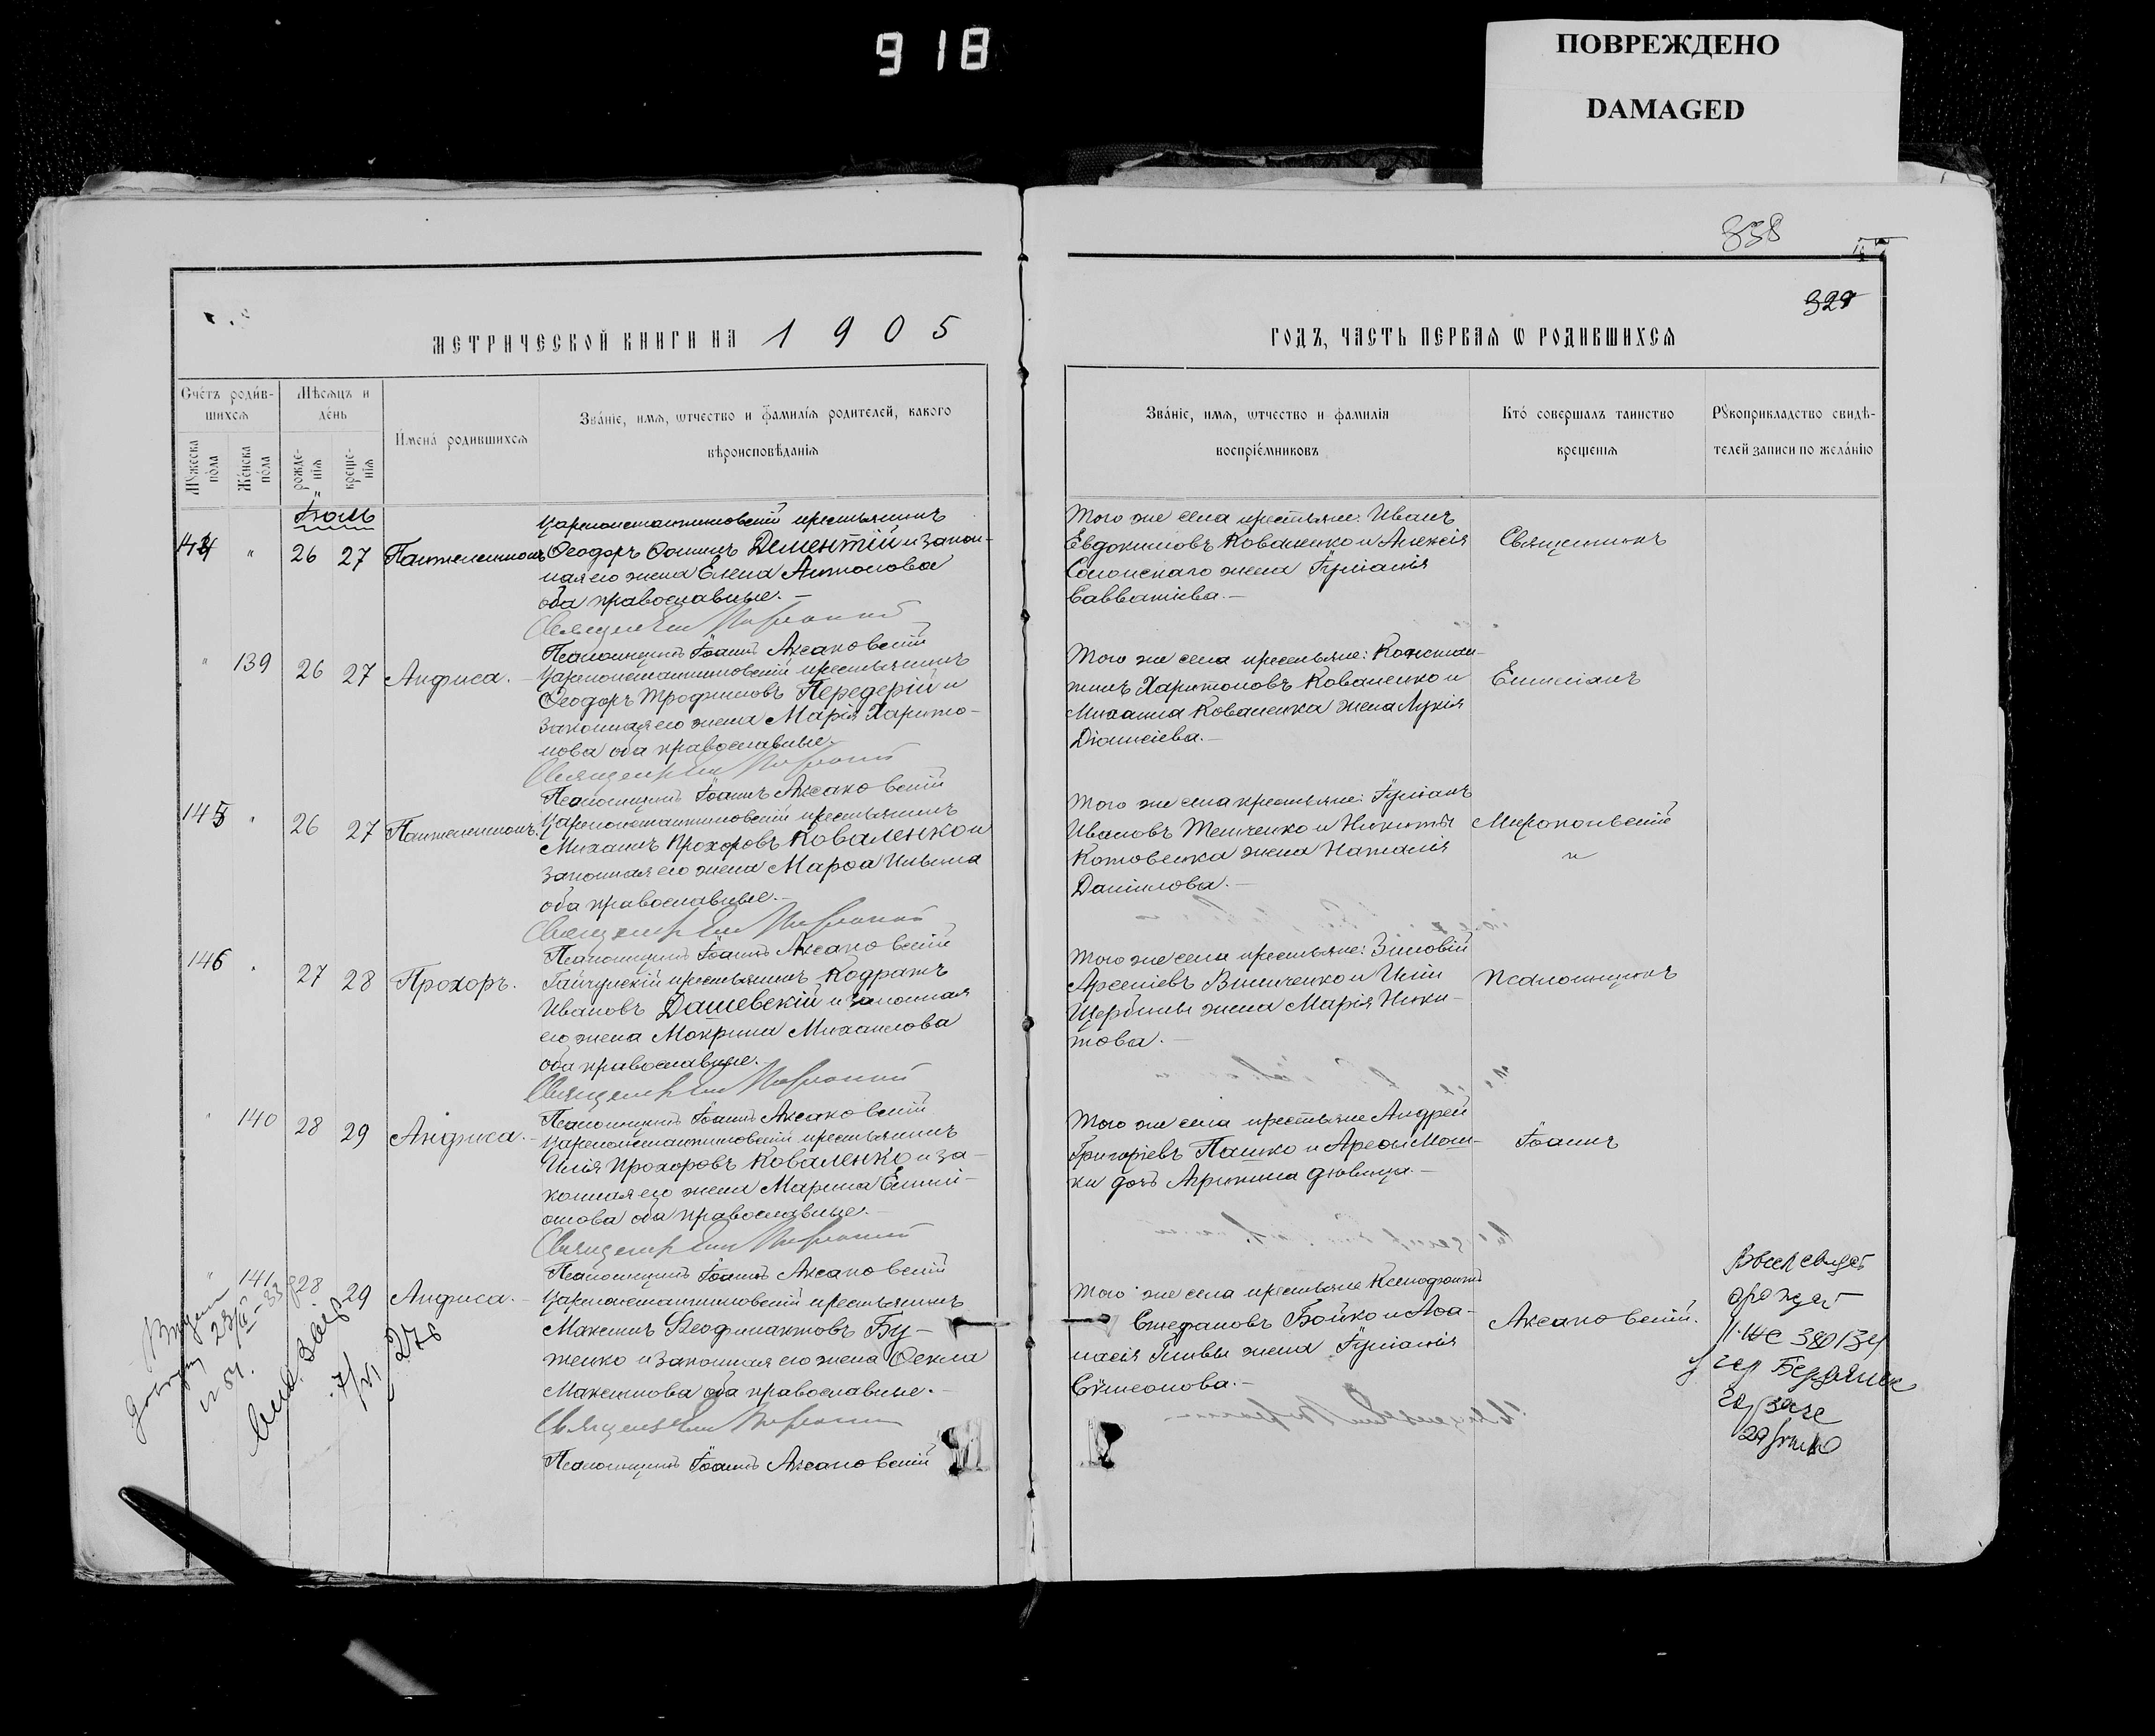 918
ПОВРЕЖДЕНО
DAMAGED
338
329
МЕТРИЧЕСКОЙ КНИГИ НА 1905
ГОДЪ, ЧАСТЬ ПЕРВАЯ Ѡ РОДИВШИХСЯ
Счётъ родив-
шихся
Мѣсяцъ и
день
Мужеска
пола
Женска
пола
рожде-
нія
креще-
нія
Имена родившихся
Званіе, имя, ѿтчество и фамилія родителей, какого
вѣроисповѣданія
Званіе, имя, ѿтчество и фамилія
воспріемниковъ
Кто совершалъ таинство
крещенія
Рукоприкладство свидѣ-
телей записи по желанію
Іюль
144 " 26 27 Пантелеимонъ
Цареконстантиновскій крестьянинъ
Ѳеодоръ Ѳоминъ Дементій и закон-
ная его жена Елена Антонова
оба православные.-
Священникъ
Псаломщикъ Іоаннъ Аксаковскій
Того же села крестьяне: Иванъ
Евдокимовъ Коваленко и Алексія
жена Іуліанія
Савватіева.-
Священникъ
" 139 26 27 Анфиса.-
Цареконстантиновскій крестьянинъ
Ѳеодоръ Трофимовъ Передерій и
законная его жена Марія Харито-
нова оба православные.-
Священникъ
Псаломщикъ Іоаннъ Аксаковскій
Того же села крестьяне: Констан-
тинъ Харитоновъ Коваленко и
Михаила Коваленка жена Лукія
Діонисіева.-
Емиліанъ
145 " 26 27 Пантелеимонъ.
Цареконстантиновскій крестьянинъ
Михаилъ Прохоровъ Коваленко и
законная его жена Марѳа Ильина
оба православные.-
Священникъ
Псаломщикъ Іоаннъ Аксаковскій
Того же села крестьяне: Іуліанъ
Ивановъ Темченко и Никиты
Котовенка жена Наталія
Даніилова.-
и
146 " 27 28 Прохоръ.
Гайчулскій крестьянинъ Кодратъ
Ивановъ Дашевскій и законная
его жена Мокрина Михаилова
оба православные.
Священникъ
Псаломщикъ Іоаннъ Аксаковскій
Того же села крестьяне: Зиновій
Арсеніевъ Винниченко и Иліи
Щербины жена Марія Ники-
това.-
Псаломщикъ
" 140 28 29 Анфиса.-
Цареконстантиновскій крестьянинъ
Илія Прохоровъ Коваленко и за-
конная его жена Марина
оба православные.-
Священникъ
Псаломщикъ Іоаннъ Аксаковскій
Того же села крестьяне Андрей
Григоріевъ Пашко и Мош-
ки дочь Агрипина дѣвица.-
Іоаннъ
" 141 28 29 Анфиса.-
Цареконстантиновскій крестьянинъ
Максимъ Ѳеофилактовъ Бу-
женко и законная его жена Ѳекла
Максимова оба православные.-
Священникъ
Псаломщикъ Іоаннъ Аксаковскій
Того же села крестьяне Ксенофонтъ
Стефановъ Бойко и Аѳа-
насія жена Іуліанія
Сѵмеонова.-
Аксаковскій.